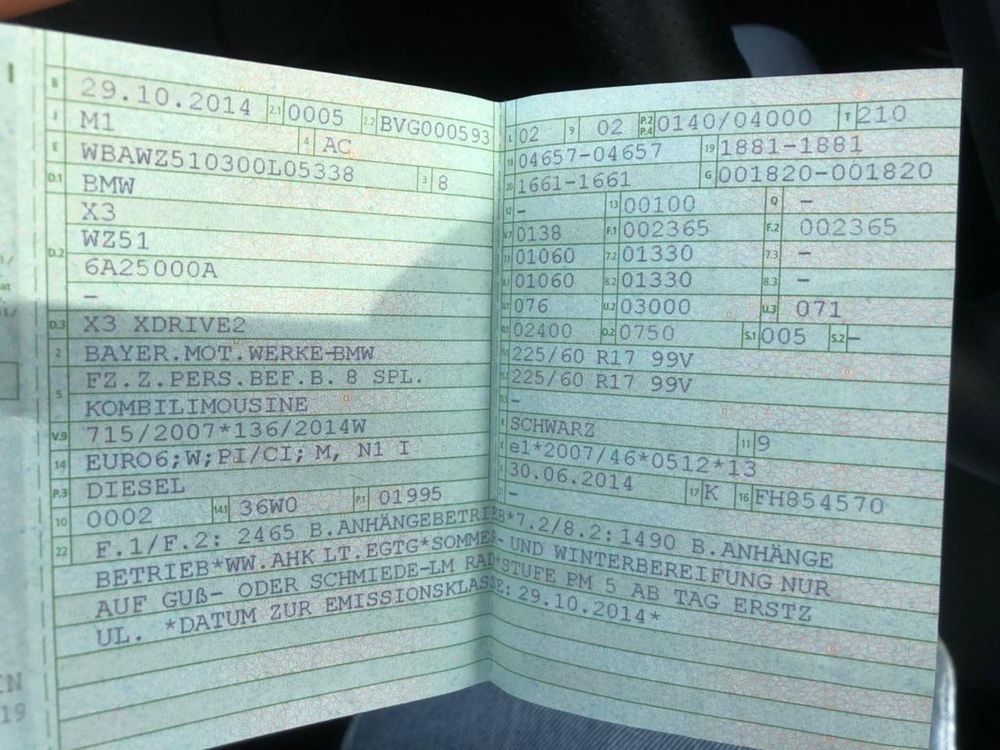 I
B 29.10.2014 2.1 0005 2.2 BVG000593
J M1 4 AC
E WBAWZ510300L05338 3 8
D.1 BMW
X3
D.2 WZ51
6A25000A
–
D.3 X3 XDRIVE2
2 BAYER.MOT.WERKE-BMW
5 FZ.Z.PERS.BEF.B. 8 SPL.
KOMBILIMOUSINE
V.9 715/2007*136/2014W
14 EURO6;W;PI/CI; M, N1 I
P.3 DIESEL
10 0002 14.1 36W0 P.1 01995
L 02 9 02 P.2 P.4 0140/04000 T 210
18 04657-04657 19 1881-1881
20 1661-1661 G 001820-001820
12 – 13 00100 Q –
V.7 0138 F.1 002365 F.2 002365
7.1 01060 7.2 01330 7.3 –
8.1 01060 8.2 01330 8.3 –
U.1 076 U.2 03000 U.3 071
O.1 02400 O.2 0750 S.1 005 S.2 –
15.1 225/60 R17 99V
15.2 225/60 R17 99V
15.3 –
R SCHWARZ 11 9
K e1*2007/46*0512*13
6 30.06.2014 17 K 16 FH854570
21 –
22 F.1/F.2: 2465 B.ANHÄNGEBETRIEB*7.2/8.2:1490 B.ANHÄNGE
BETRIEB*WW.AHK LT.EGTG*SOMMER- UND WINTERBEREIFUNG NUR
AUF GUß- ODER SCHMIEDE-LM RAD*STUFE PM 5 AB TAG ERSTZ
UL. *DATUM ZUR EMISSIONSKLASSE: 29.10.2014*
19